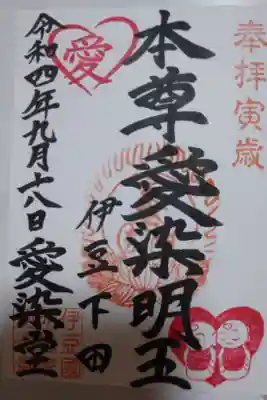 奉拝寅歳
本尊愛染明王
伊豆下田
愛
令和四年九月十八日愛染堂
伊豆國